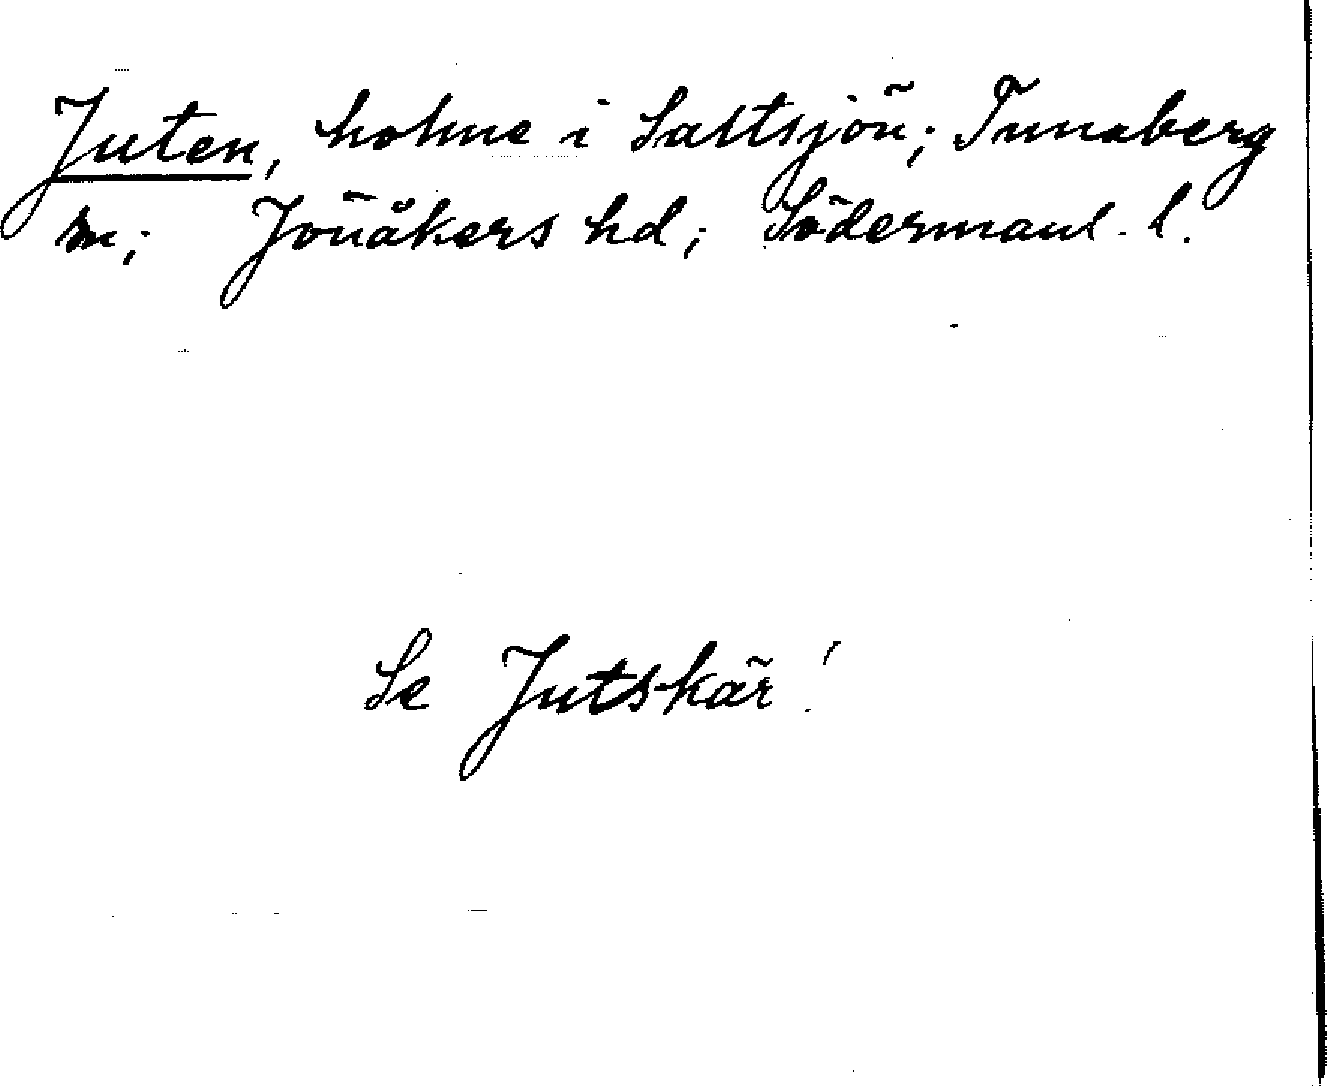 Juten, holme i Saltsjön; Tunaberg
sn; Jönåkers hd; Södermanl. l.
Se Jutskär!